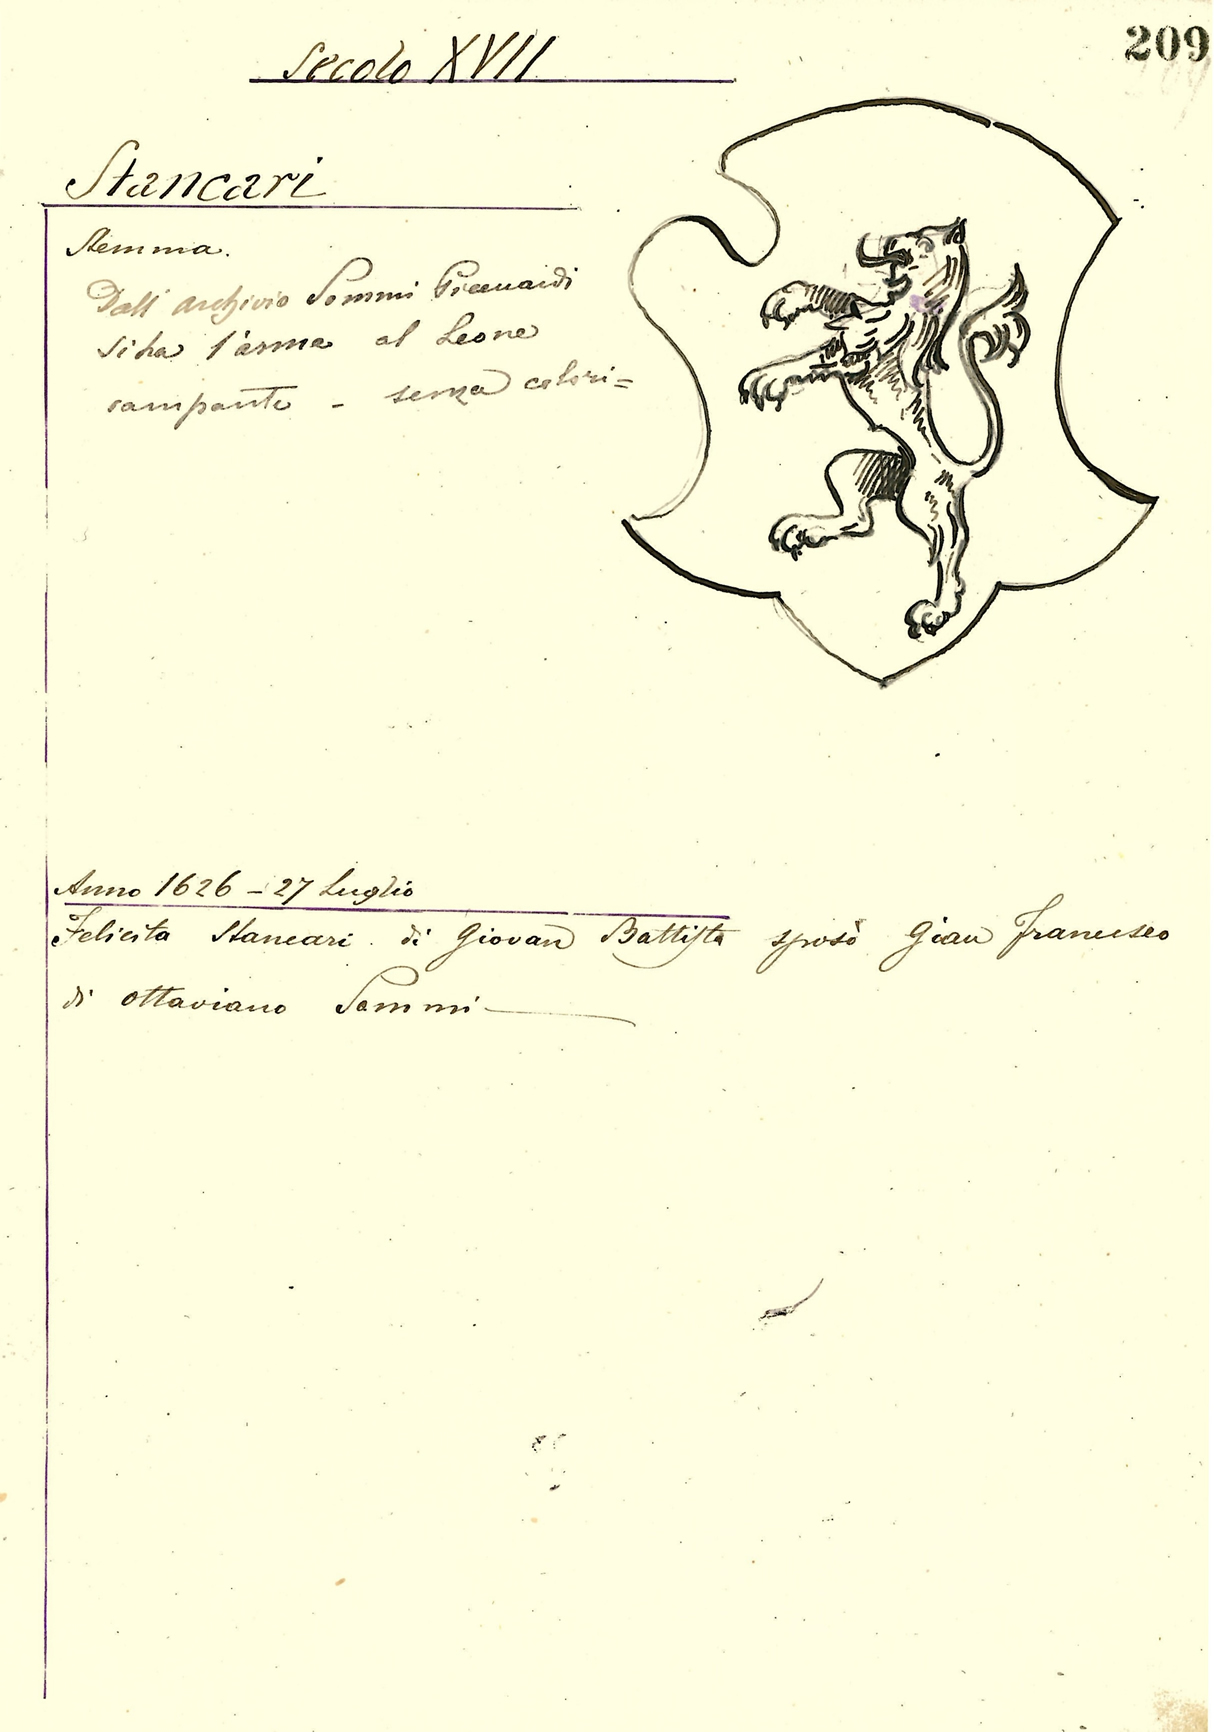 209
Secolo XVII
Stancari
Stemma.
Dall' archivio Sommi Picenardi
si ha l'arma al Leone
rampante - senza colori=
Anno 1626 - 27 Luglio
Felicita Stancari di Giovan Battista sposò Gian Francesco
di Ottaviano Sommi